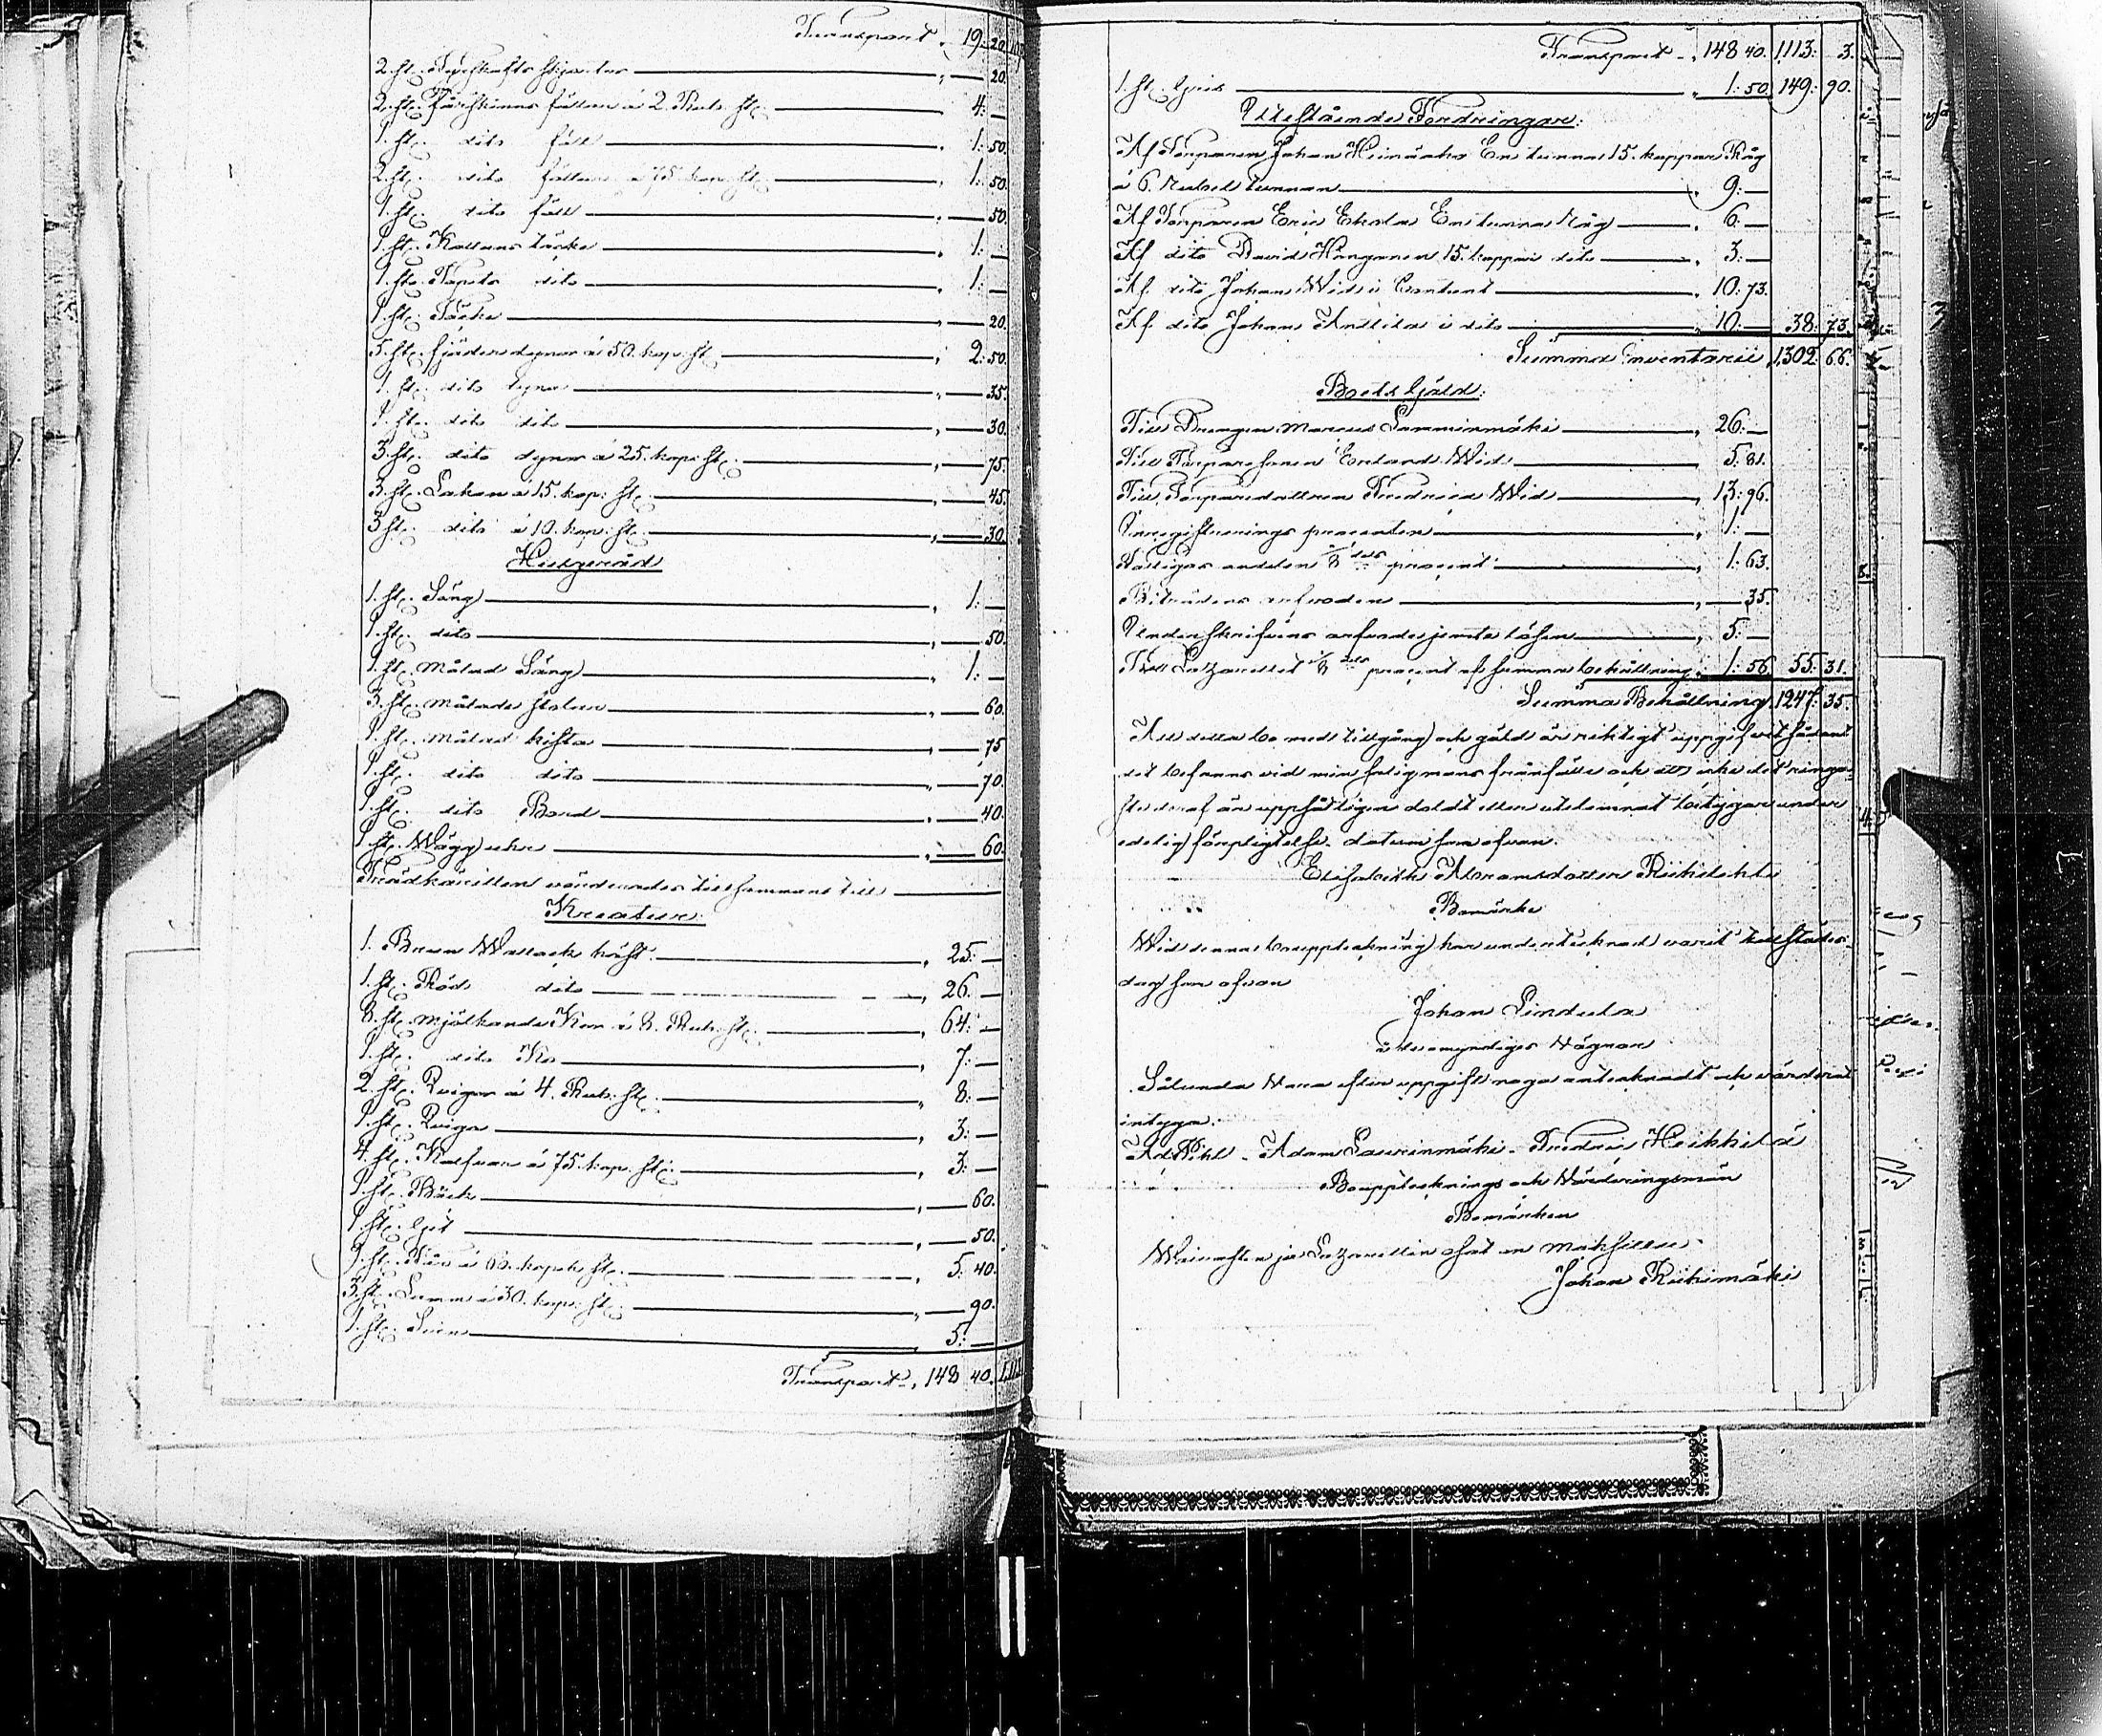 Transport „ 19: 20.
2. st. skjortor „ — 20.
2. st. Fårskinns fällar á 2. Rub. st. 4: —
1. st. dito fäll „ 1: 50.
2. st. dito fällar á 75. kop. st. „ 1: 50.
1. st. dito fäll „ — 50.
1. st. Kattuns täcke „ 1: —
1. st. Tapets dito „ 1: —
1. st. Täcke „ — 20.
5. st. fjäderdynor á 50. kop. st. „ 2: 50.
1. st. dito dyna „ — 35.
1. st. dito dito „ — 30.
3. st. dito dynor á 25. kop. st. „ — 75.
3. st. Lakan á 15. kop. st. „ — 45.
3. st. dito á 10. kop. st. „ — 30.
Husgeråd
1. st. Säng „ 1: —
1. st. dito „ — 50.
1. st. målad Säng „ 1: —
3. st. målade stolar „ — 60.
1. st. målad kista „ — 75
1. st. dito dito „ — 70.
1. st. dito Bord „ — 40.
1. st. Wägg uhr „ — 60.
Trädkärillen värderades tillsammans till
Kreatur:
1. Brun Wallack häst „ 25: —
1. st. Röd dito „ 26. —
8. st. mjölkande Kor á 8. Rub. st. „ 64: —
1. st. dito Ko „ 7: —
2. st. Qvigor á 4. Rub. st. „ 8: —
1. st. Qviga „ 3: —
4. st. Kalfvar á 75. kop. st. „ 3: —
1. st. Bäck „ — 60.
1. st. Get „ — 50.
9. st. Får á 60. kopek st. „ 5: 40.
3. st. Lamm á 30. kop. st. „ — 90.
1. st. Svin „ 5: —
Transport „ 148 40.
Transport „ 148 40. 1113: 3.
1. st. Gris „ 1: 50. 149: 90.
Utestående Fordringar:
Af Torparen Johan En tunna 15. kappar Råg
á 6. Rubel tunnan „ 9: —
Af Torparen Eric Ekola En tunna Råg „ 6. —
Af dito David 15. kappar dito „ 3: —
Af dito Johan Wid i Contant „ 10: 73.
Af dito Johan Anttila i dito „ 10: — 38: 73.
Summa Inventarii „ 1302: 66.
Boets Gäld:
Till Drengen Marcus „ 26: —
Till Torparesonen Erland Wid „ 5: 81.
Till Torparedottren Fredrica Wid „ 13: 96.
Inregistrerings procenten „ 1: —
Fattigas andelen 1/8 dels procent „ 1: 63.
Biträdens arfvoden „ — 35.
Underskrifvens arfvode jemte lösen „ 5: —
Till Lazarettet 1/8 dels procent af samma behållning „ 1: 56. 55: 31.
Summa Behållning 1247: 35.
Att detta bo med tillgång och gäld är riktigt uppgifvit sådant
det befanns vid min salig mans frånfälle och att icke det ringa-
ste deraf är uppsåtligen doldt eller utelemnat betygar under
edelig förpligtelse. datum som ofvan.
Elisabeth Abramsdotter Riihilahti
Bomärke
Wid denna bouppteckning har undertecknad varit tillstädes.
dag som ofvan
Johan Lindula
á de omyndiges Wägnar
Sålunda vara efter uppgift noga antecknadt och värderat
intyga:
Ad. Pihl. Adam Laurinmäki. Fredric Heikkilä
Bouppteknings och Wärderingsmän
Bomärken
ja Lazarettin osat on maksettu
Johan Riihimäki